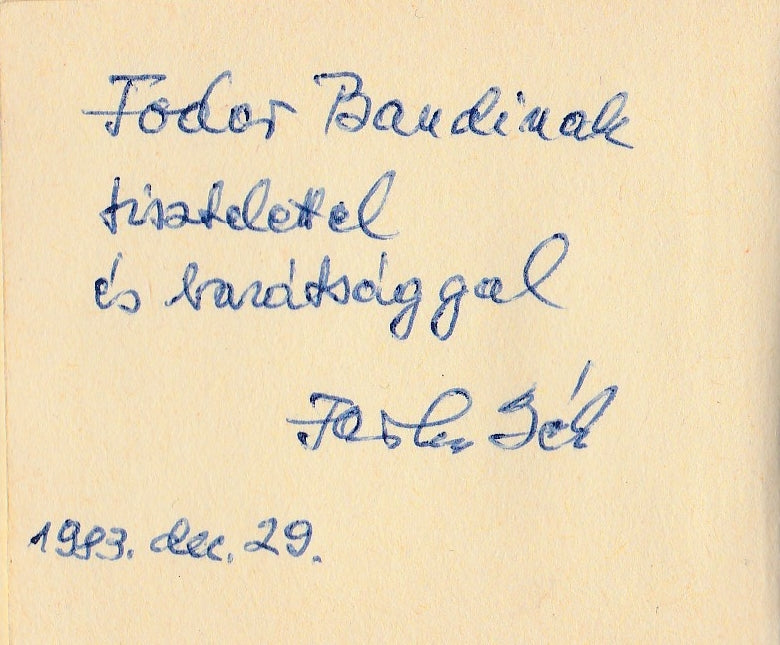 Fodor Bandinak
tisztelettel
és barátsággal
1983. dec. 29.